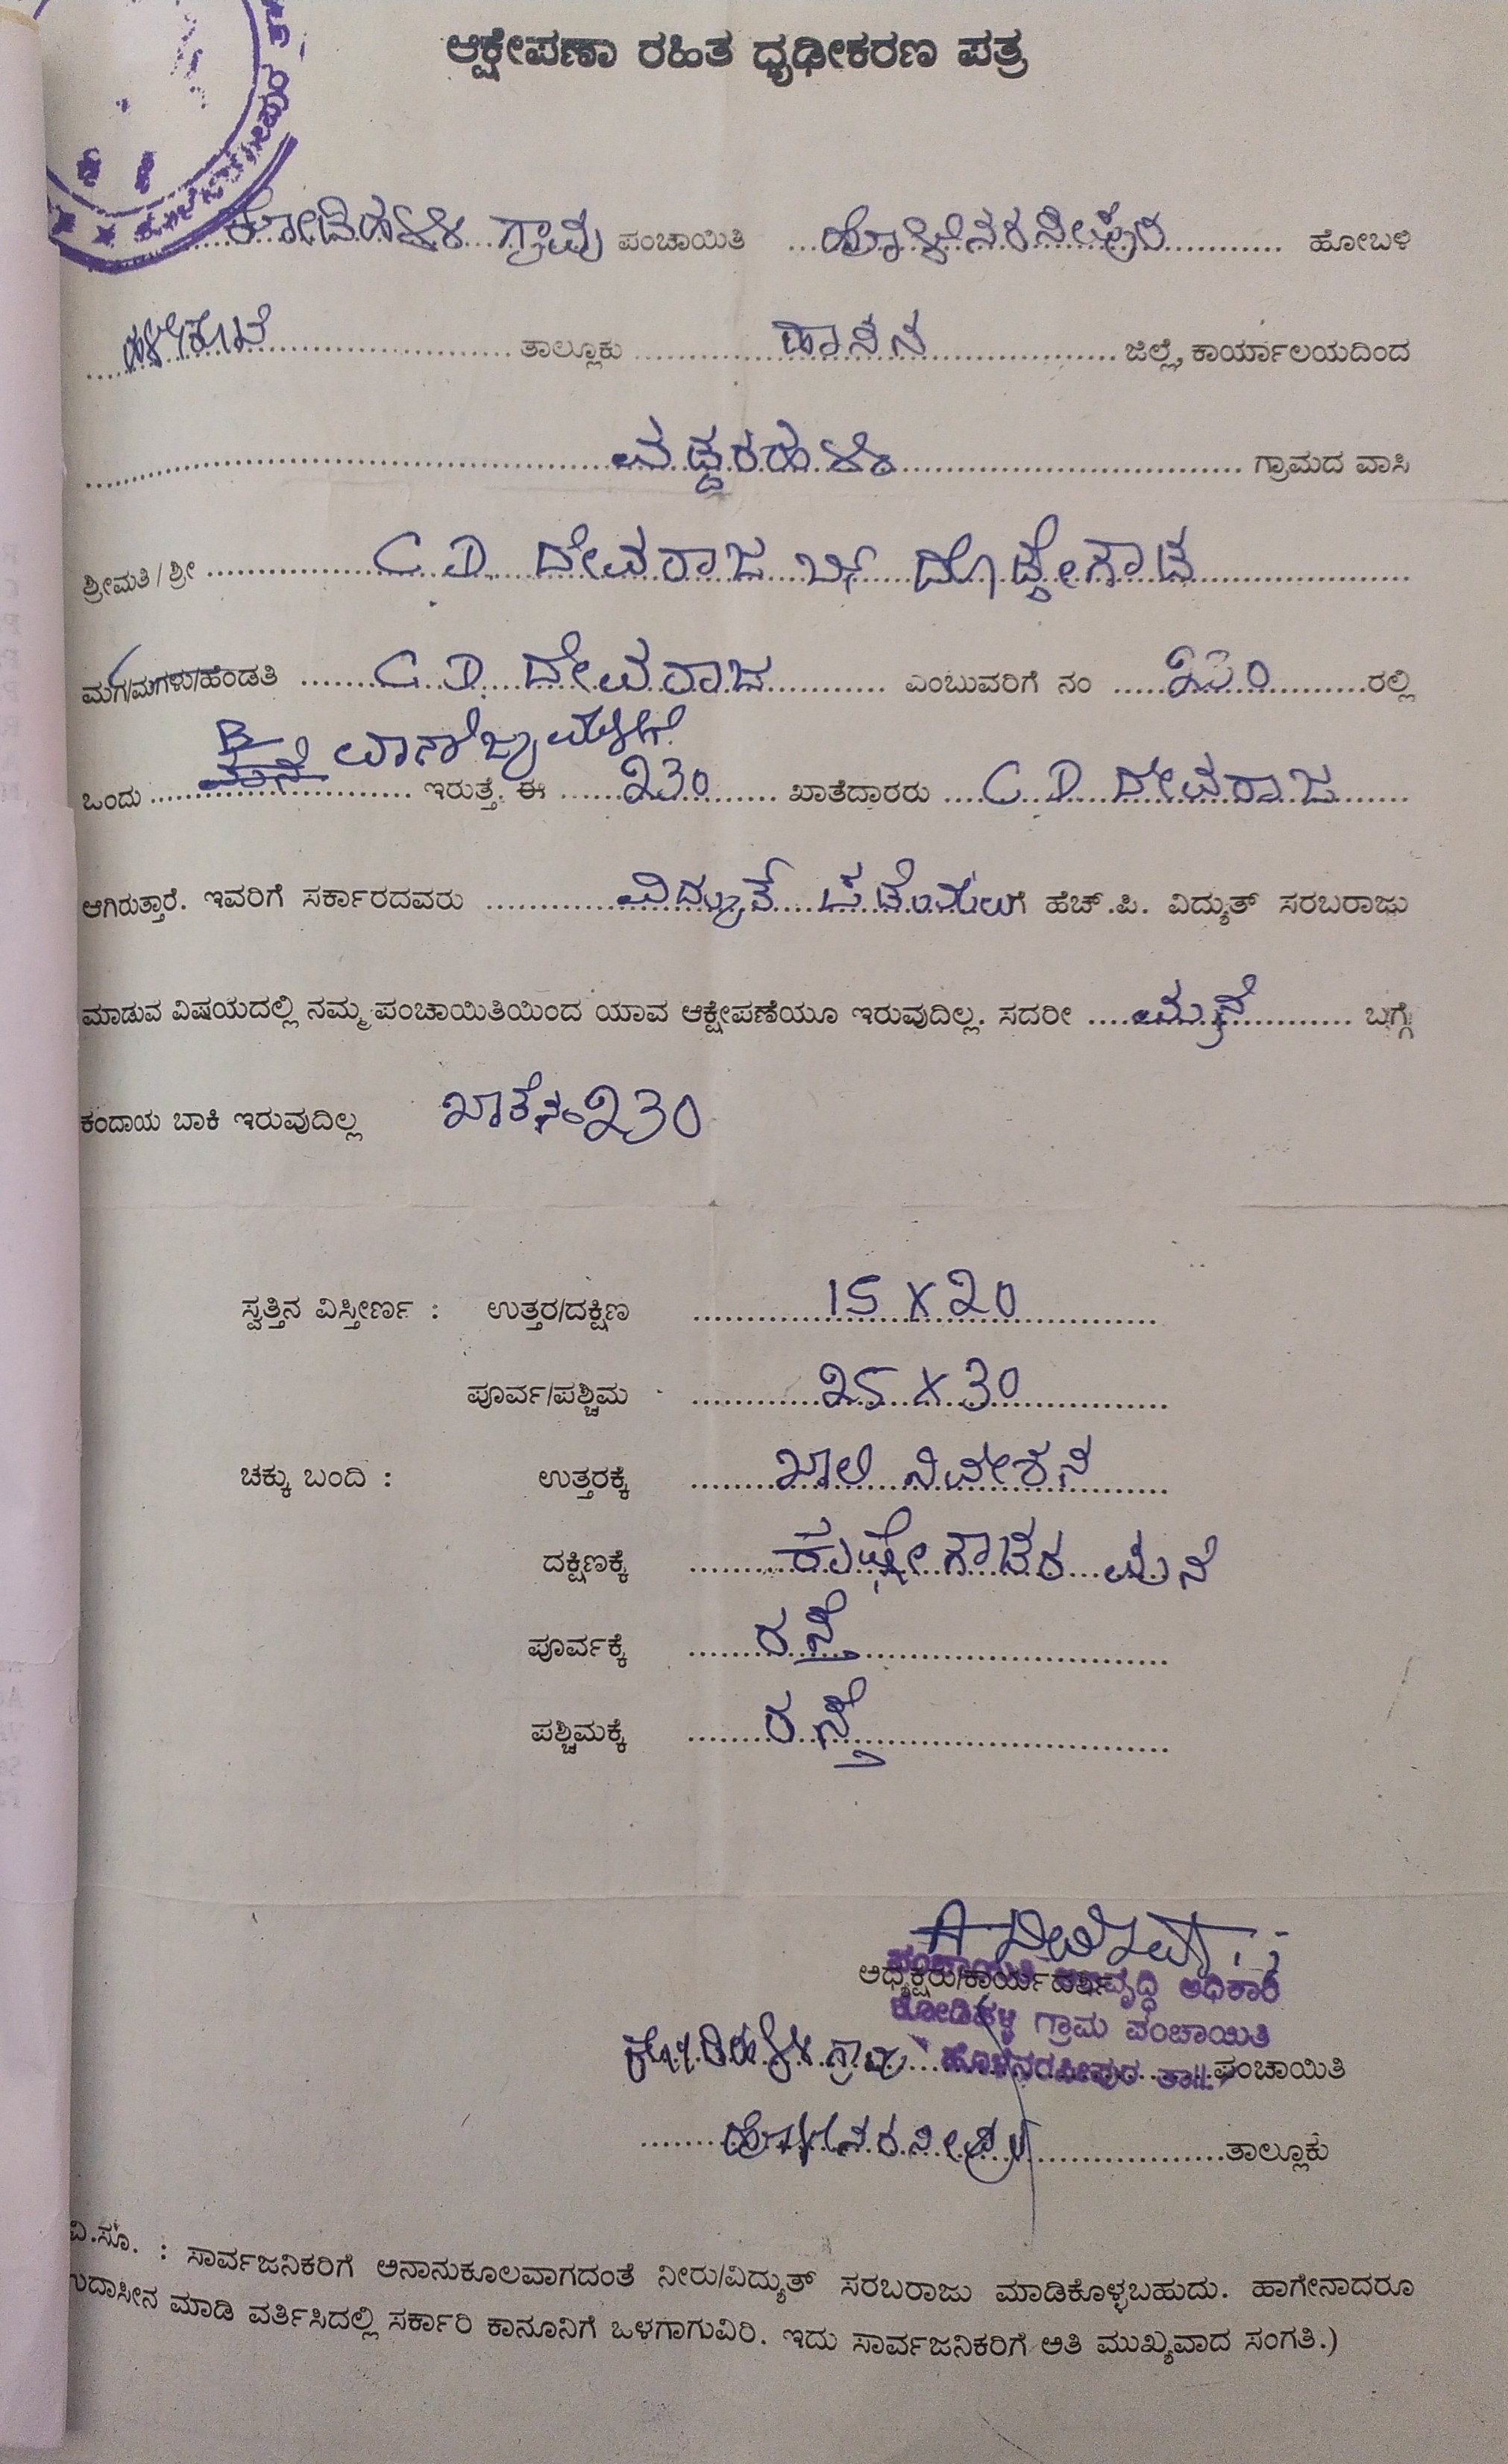 ಆಕ್ಷೇಪಣಾ ರಹಿತ ಧೃಢೀಕರಣ ಪತ್ರ
ಕೋಡಿಹಳ್ಳಿ ಗ್ರಾಮ ಪಂಚಾಯಿತಿ ... ಹೊಳೆನರಸೀಪುರ ... ಹೋಬಳಿ
... ಹಳೇಕೋಟೆ ... ತಾಲ್ಲೂಕು ... ಹಾಸನ ... ಜಿಲ್ಲೆ, ಕಾರ್ಯಾಲಯದಿಂದ
... ವಡ್ಡರಹಳ್ಳಿ ... ಗ್ರಾಮದ ವಾಸಿ
ಶ್ರೀಮತಿ / ಶ್ರೀ ... C. D. ದೇವರಾಜ ಬಿನ್ ದೊಡ್ಡೇಗೌಡ ...
ಮಗ/ಮಗಳು/ಹೆಂಡತಿ ... C. D. ದೇವರಾಜ ... ಎಂಬುವರಿಗೆ ನಂ ... 230 ... ರಲ್ಲಿ
ವಾಣಿಜ್ಯ ಮಳಿಗೆ
ಒಂದು ... ಮನೆ ... ಇರುತ್ತೆ. ಈ ... 230 ... ಖಾತೆದಾರರು ... C. D. ದೇವರಾಜ ...
ಆಗಿರುತ್ತಾರೆ. ಇವರಿಗೆ ಸರ್ಕಾರದವರು ... ವಿದ್ಯುತ್ ಪಡೆಯಲುಗೆ ಹೆಚ್.ಪಿ. ವಿದ್ಯುತ್ ಸರಬರಾಜು
ಮಾಡುವ ವಿಷಯದಲ್ಲಿ ನಮ್ಮ ಪಂಚಾಯಿತಿಯಿಂದ ಯಾವ ಆಕ್ಷೇಪಣೆಯೂ ಇರುವುದಿಲ್ಲ. ಸದರೀ ... ಮನೆ ... ಬಗ್ಗೆ
ಕಂದಾಯ ಬಾಕಿ ಇರುವುದಿಲ್ಲ ಖಾತೆ ನಂ 230
ಸ್ವತ್ತಿನ ವಿಸ್ತೀರ್ಣ : ಉತ್ತರ/ದಕ್ಷಿಣ ... 15 X 20 ...
ಪೂರ್ವ/ಪಶ್ಚಿಮ ... 25 X 30 ...
ಚಕ್ಕು ಬಂದಿ : ಉತ್ತರಕ್ಕೆ ... ಖಾಲಿ ನಿವೇಶನ ...
ದಕ್ಷಿಣಕ್ಕೆ ... ಗೌಡರ ಮನೆ
ಪೂರ್ವಕ್ಕೆ ... ರಸ್ತೆ ...
ಪಶ್ಚಿಮಕ್ಕೆ ... ರಸ್ತೆ ...
ಅಧ್ಯಕ್ಷರು/ಕಾರ್ಯದರ್ಶಿ
ಪಂಚಾಯಿತಿ ಅಭಿವೃದ್ಧಿ ಅಧಿಕಾರಿ
ಕೋಡಿಹಳ್ಳಿ ಗ್ರಾಮ ಪಂಚಾಯಿತಿ
ಹೊಳೆನರಸೀಪುರ ತಾ||.
ಕೋಡಿಹಳ್ಳಿ ಗ್ರಾಮ ... ಪಂಚಾಯಿತಿ
... ಹೊಳೆನರಸೀಪುರ ... ತಾಲ್ಲೂಕು
ವಿ.ಸೂ. : ಸಾರ್ವಜನಿಕರಿಗೆ ಅನಾನುಕೂಲವಾಗದಂತೆ ನೀರು/ವಿದ್ಯುತ್ ಸರಬರಾಜು ಮಾಡಿಕೊಳ್ಳಬಹುದು. ಹಾಗೇನಾದರೂ
ಉದಾಸೀನ ಮಾಡಿ ವರ್ತಿಸಿದಲ್ಲಿ ಸರ್ಕಾರಿ ಕಾನೂನಿಗೆ ಒಳಗಾಗುವಿರಿ. ಇದು ಸಾರ್ವಜನಿಕರಿಗೆ ಅತಿ ಮುಖ್ಯವಾದ ಸಂಗತಿ.)